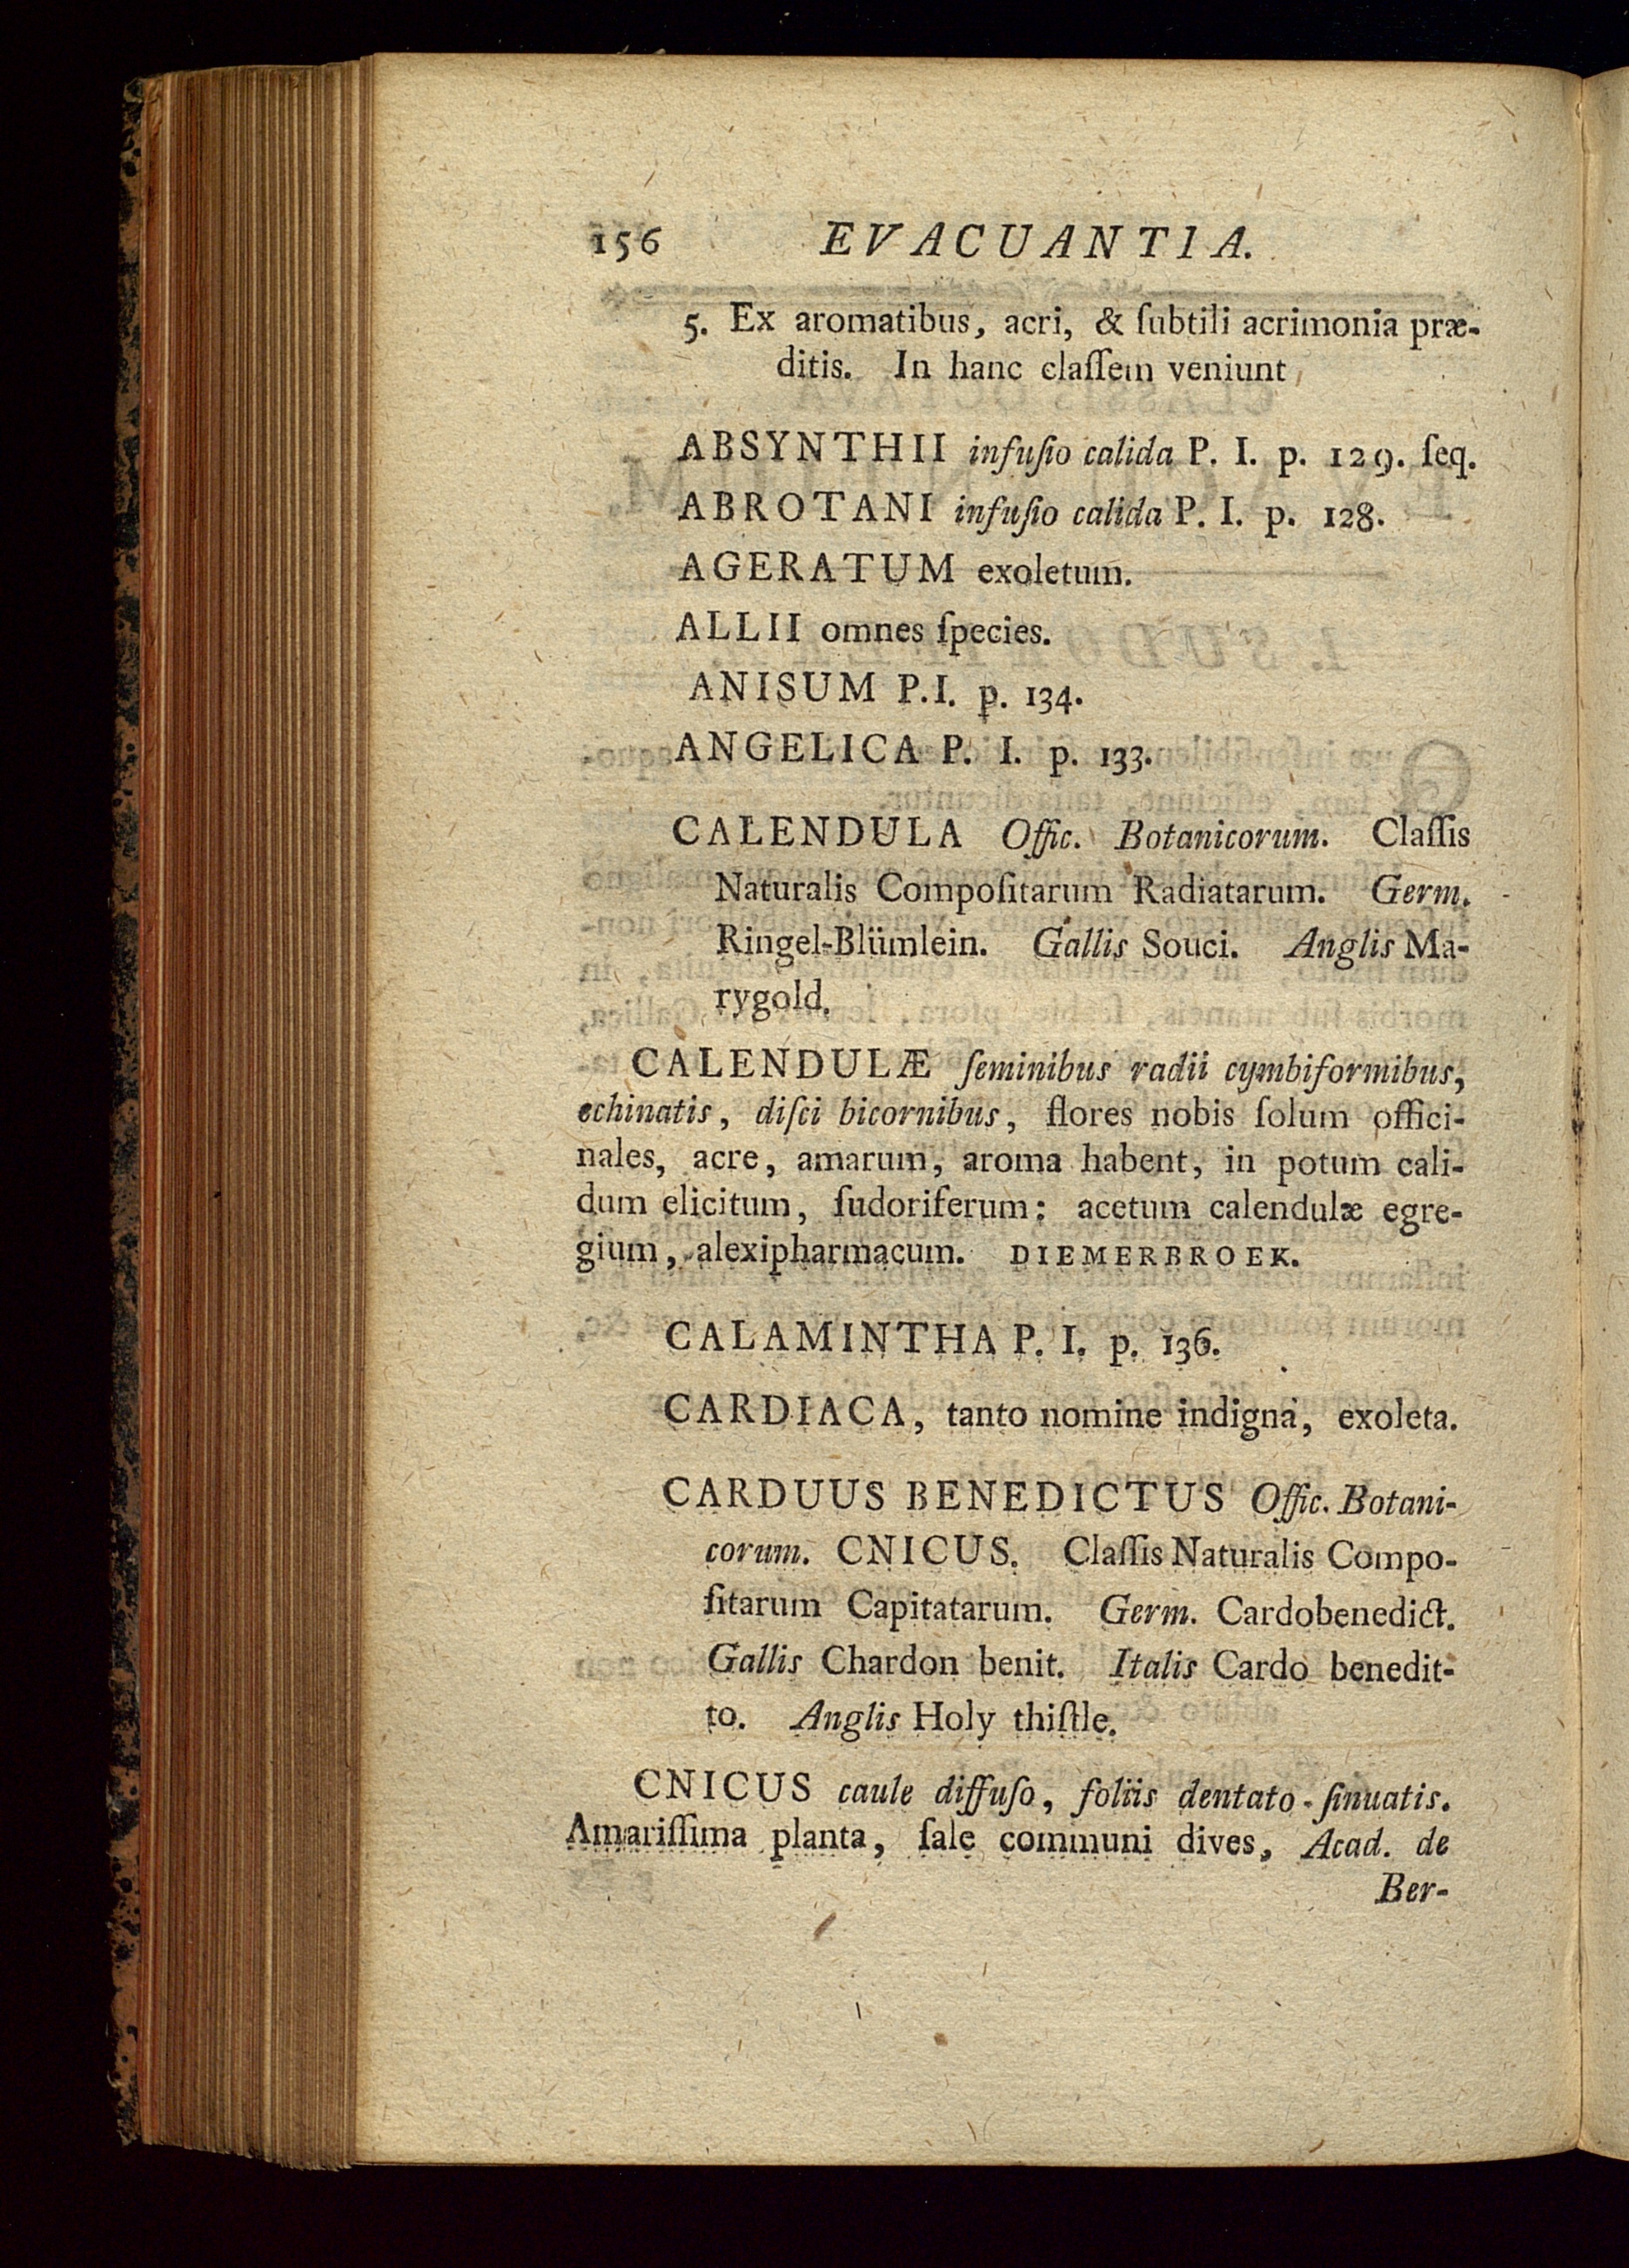 156 EVACUANTIA.
5. Ex aromatibus, acri, & ſubtili acrimonia præ-
ditis. In hanc claſſem veniunt
ABSYNTHII infuſio calida P. I. p. 129. ſeq.
ABROTANI infuſio calida P. I. p. 128.
AGERATUM exoletum.
ALLII omnes ſpecies.
ANISUM P. I. p. 134.
ANGELICA P. I. p. 133.
CALENDULA Offic. Botanicorum. Claſſis
Naturalis Compoſitarum Radiatarum. Germ.
Ringel-Blümlein. Gallis Souci. Anglis Ma-
rygold.
CALENDULÆ ſeminibus radii cymbiformibus,
echinatis, diſci bicornibus, flores nobis ſolum offici-
nales, acre, amarum, aroma habent, in potum cali-
dum elicitum, ſudoriferum: acetum calendulæ egre-
gium, alexipharmacum. DIEMERBROEK.
CALAMINTHA P. I. p. 136.
CARDIACA, tanto nomine indigna, exoleta.
CARDUUS BENEDICTUS Offic. Botani-
corum. CNICUS. Claſſis Naturalis Compo-
ſitarum Capitatarum. Germ. Cardobenedict.
Gallis Chardon benit. Italis Cardo benedit-
to. Anglis Holy thiſtle.
CNICUS caule diffuſo, foliis dentato-ſinuatis.
Amariſſima planta, ſale communi dives, Acad. de
Ber-